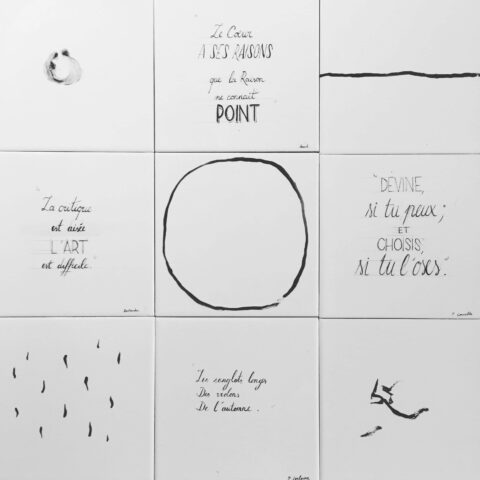 Le Cœur
A SES RAISONS
que la Raison
ne connait
POINT
La critique
est aisée
L'ART
est difficile.
"DEVINE,
si tu peux;
ET
CHOISIS,
si tu l'oses".
P. Corneille
Les sanglots longs
Des violons
De l'automne.
P. Verlaine